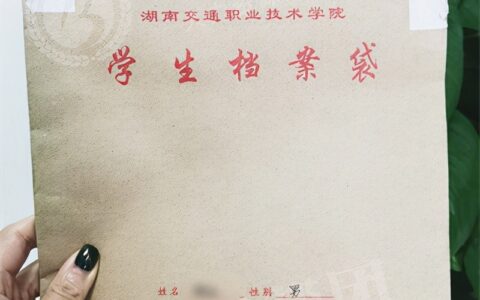 湖南交通职业技术学院
学生档案袋
姓名 性别 男